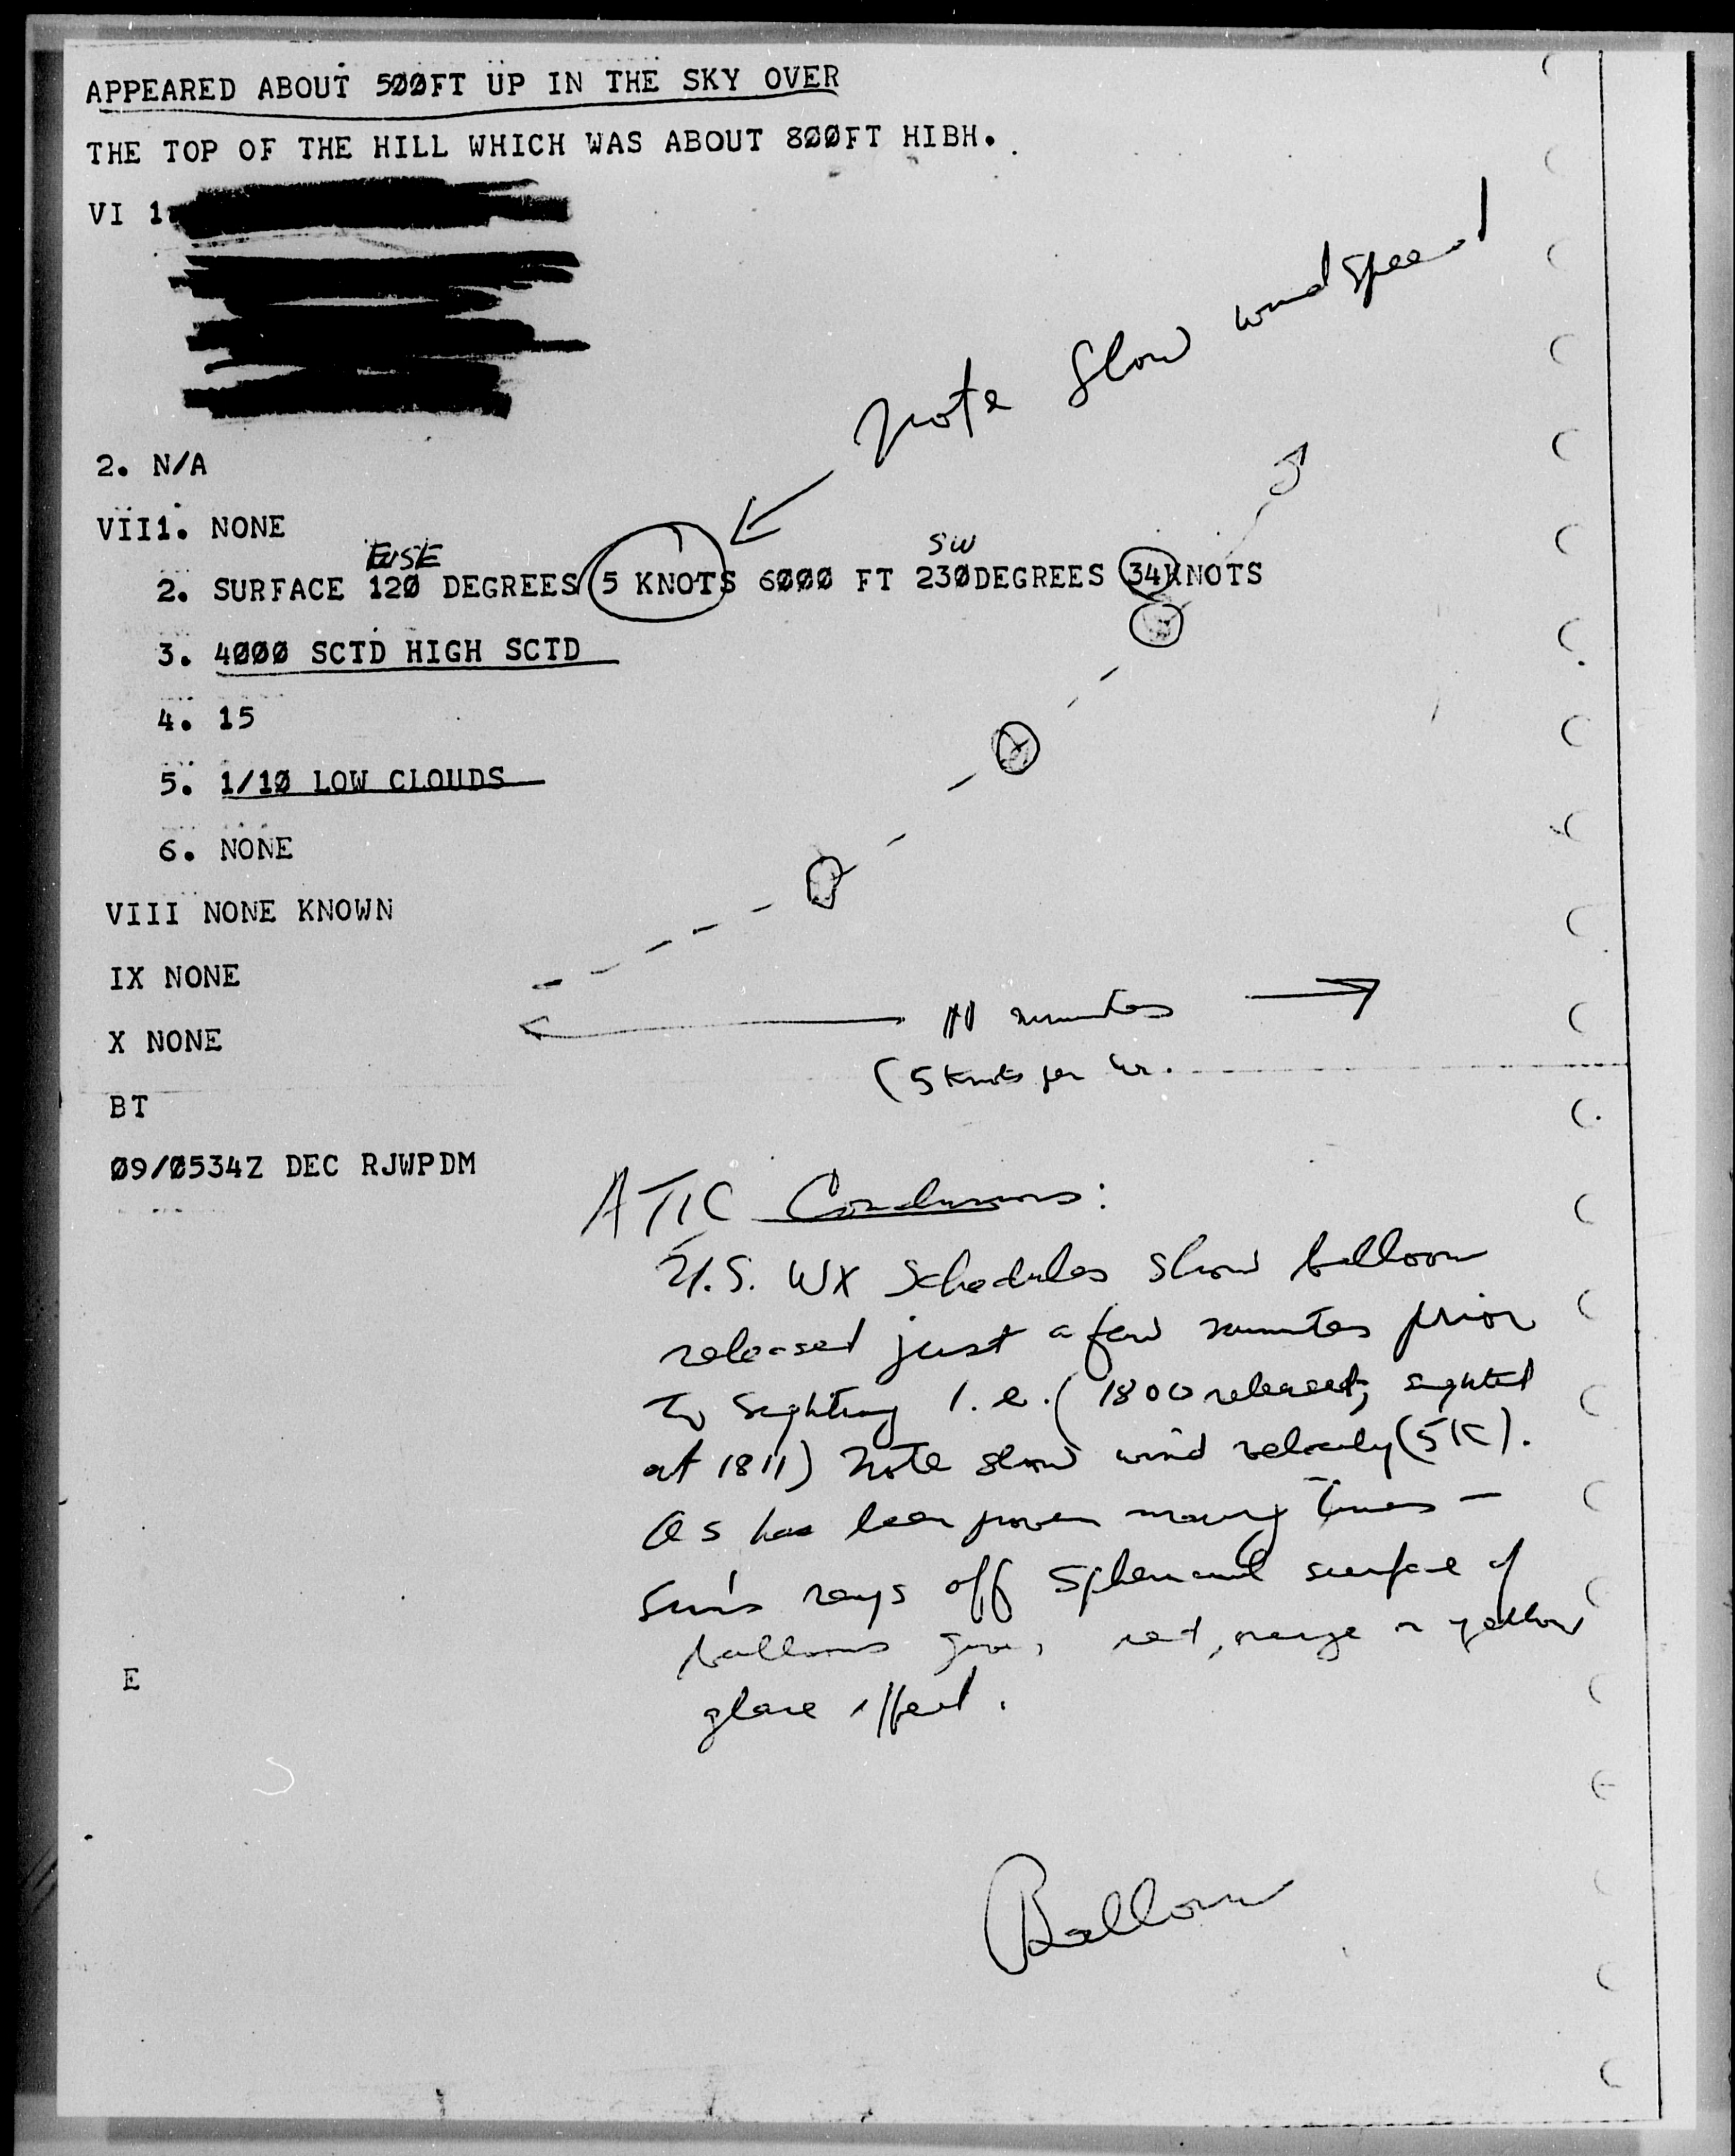 APPEARED ABOUT 500FT UP IN THE SKY OVER
THE TOP OF THE HILL WHICH WAS ABOUT 800FT HIBH.
VI 1
Note Slow wind speed
2. N/A
VIII. NONE
SW
2. SURFACE 120 DEGREES 5 KNOTS 6000 FT 230DEGREES 34KNOTS
3. 4000 SCTD HIGH SCTD
4. 15
5. 1/10 LOW CLOUDS
6. NONE
VIII NONE KNOWN
IX NONE
11 minutes
X NONE
(5 Knots per hr.
BT
09/0534Z DEC RJWPDM
ATIC Conclusions:
U.S. WX Schedules show balloon
released just a few minutes prior
to sighting i.e. (1800 released; sighted
at 1811) Note slow wind velocity (5K).
As has been proven many times -
Sun's rays off spherical surface of
balloons give, red, orange or yellow
E
glare effect.
Balloon